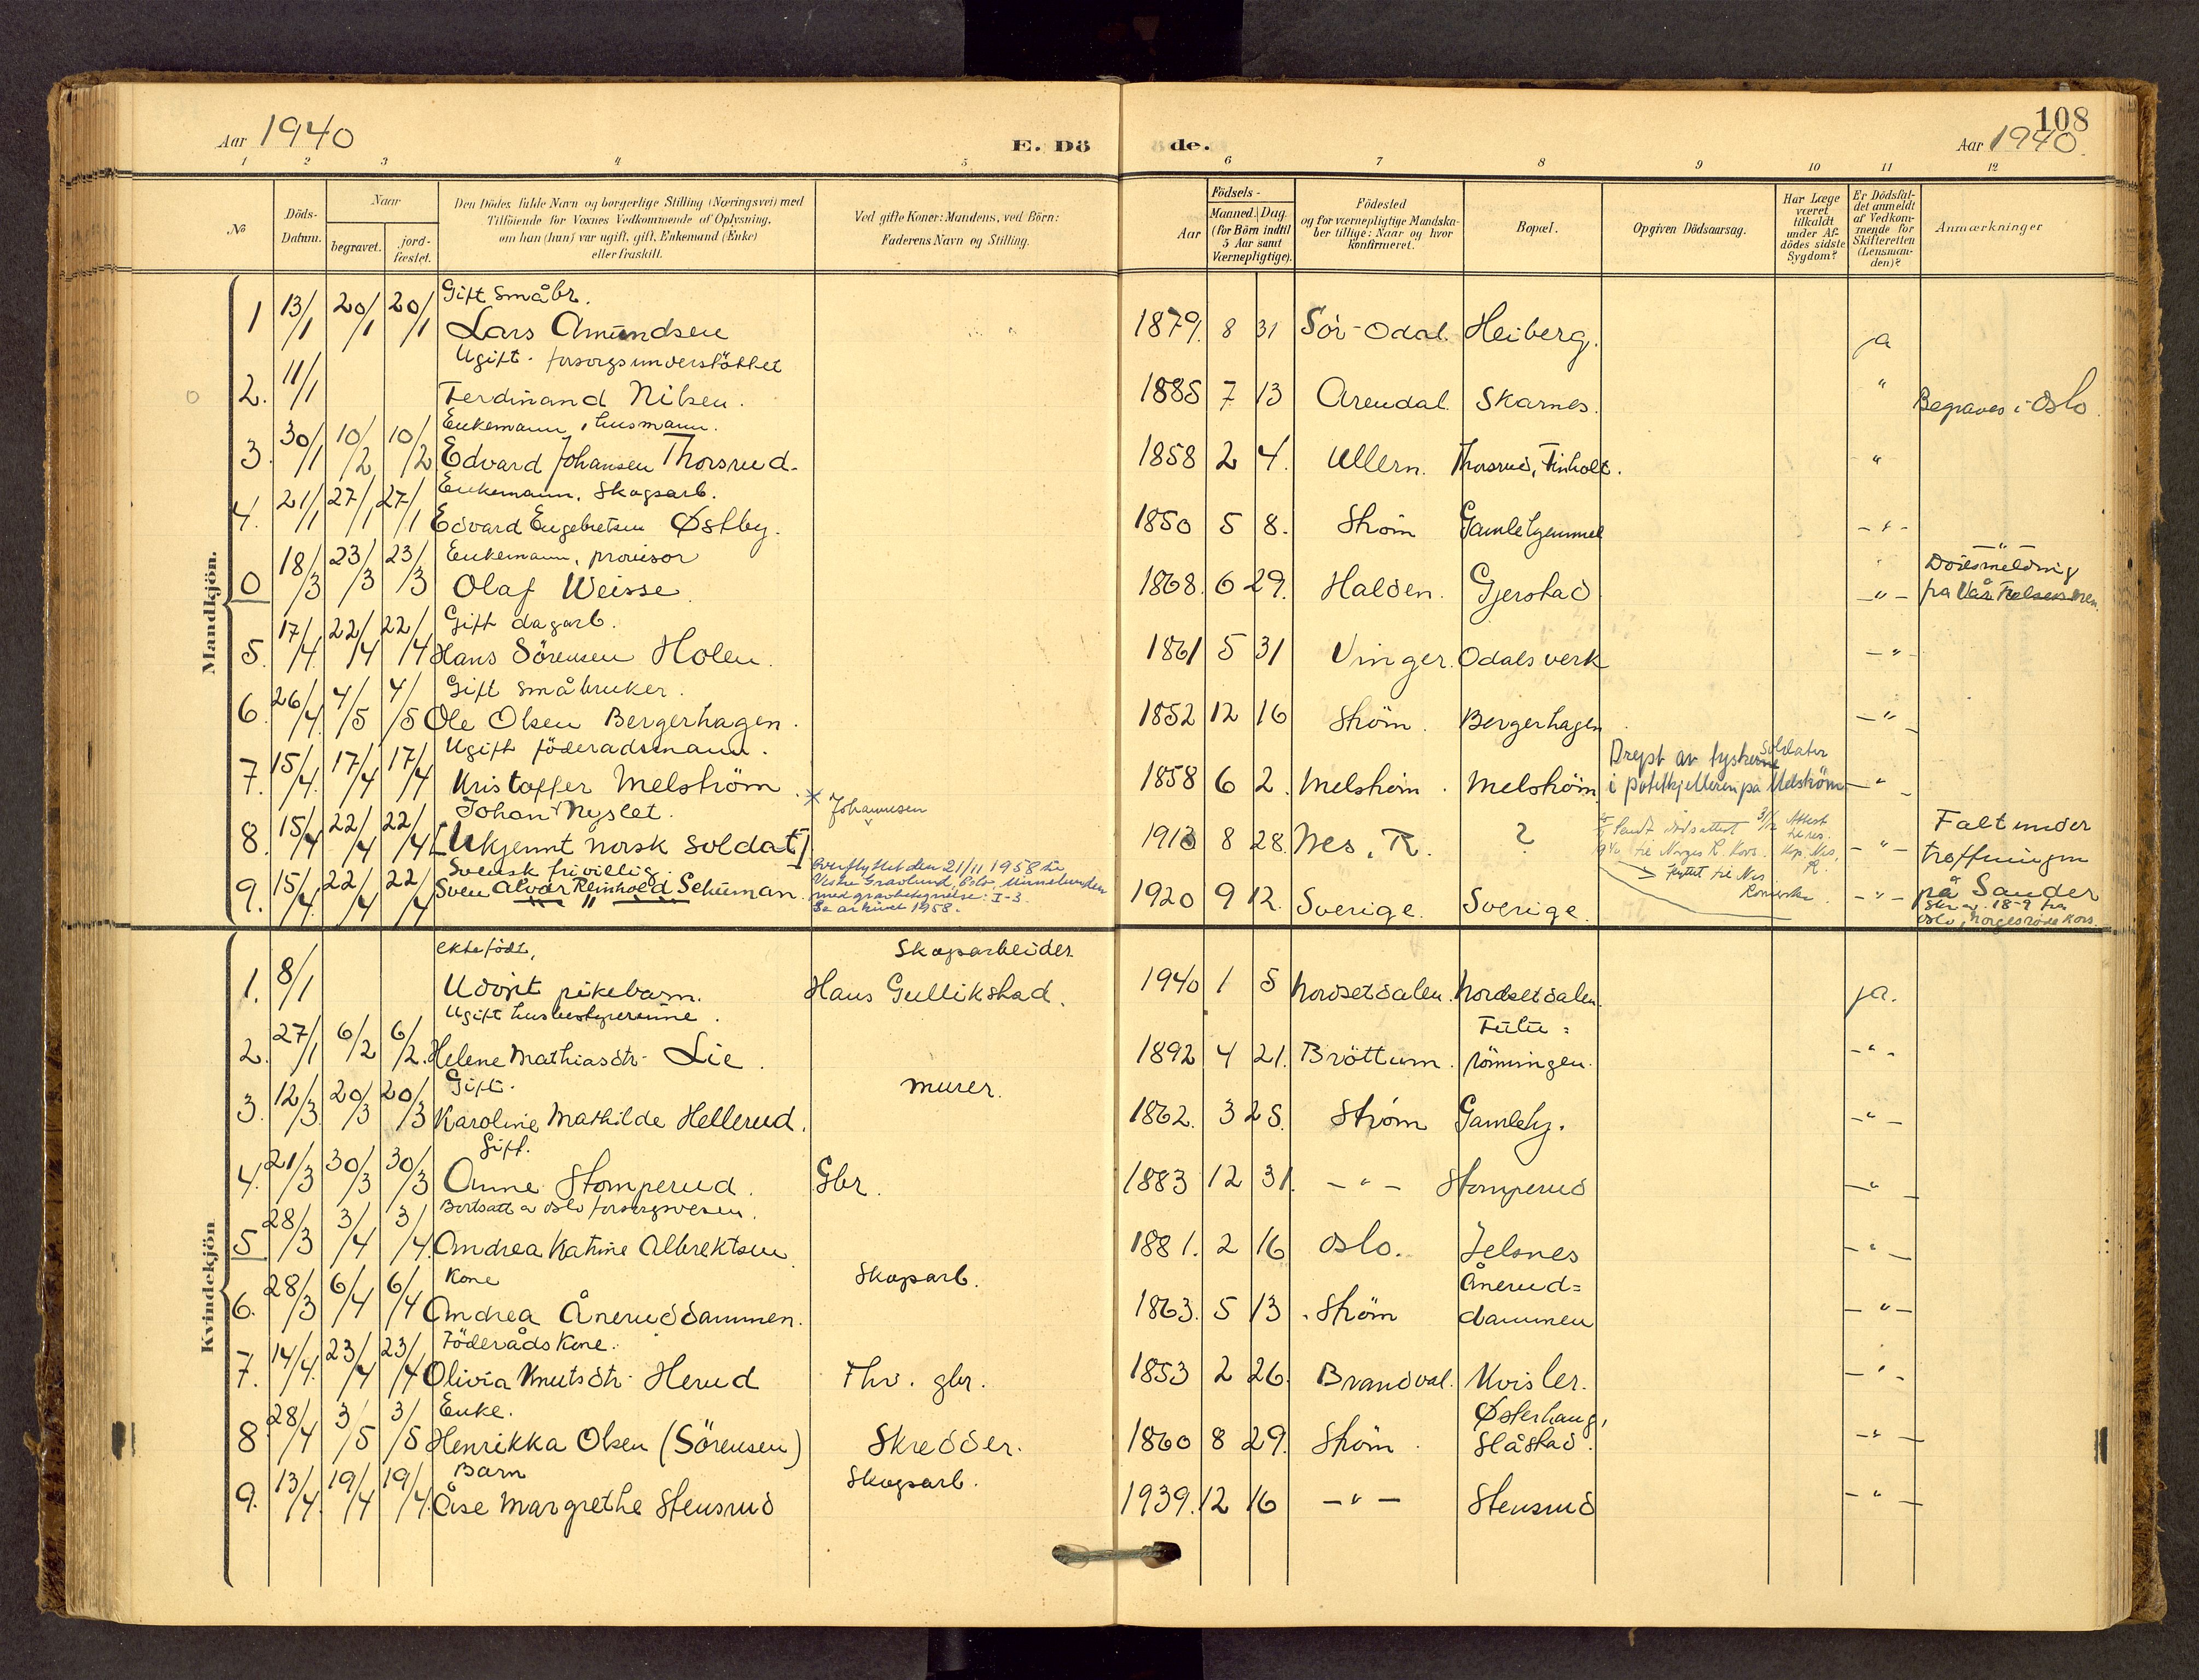 108
Aar 1940
E. Dö de.
Aar 1940
1 2 3 4 5 6 7 8 9 10 11 12
№
Döds-
Datum.
Naar
begravet.
jord-
fæstet.
Den Dödes fulde Navn og borgerlige Stilling (Næringsvei) med
Tilföiende for Voxnes Vedkommende af Oplysning,
om han (hun) var ugift, gift, Enkemand (Enke)
eller fraskilt.
Ved gifte Koner: Mandens, ved Börn:
Faderens Navn og Stilling.
Födsels-
Aar
Maaned. Dag.
(for Börn indtil
5 Aar samt
Værnepligtige).
Födested
og for værnepligtige Mandska-
ber tillige: Naar og hvor
konfirmeret.
Bopæl.
Opgiven Dödsaarsag.
Har Læge
været
tilkaldt
under Af-
dödes sidste
Sygdom?
Er Dödsfal-
det anmeldt
af Vedkom-
mende for
Skifteretten
(Lensman-
den)?
Anmærkninger
Mandkjön.
Gift småbr.
1 13/1 20/1 20/1 Lars Amundsen 1879. 8 31 Sör-Odal. Heiberg. ja
Ugift. forsorgsunderstöttet
2. 11/1 Ferdinand Nilsen. 1885 7 13 Arendal. Skarnes. " Begraves i Oslo.
Enkemann, husmann.
3. 30/1 10/2 10/2 Edvard Johansen Thorsrud. 1858 2 4. Ullern. Thorsrud, Finholt. "
Enkemann. Skogsarb.
4. 21/1 27/1 27/1 Edvard Engebretsen Østby. 1850 5 8. Ström Gamlehjemmet - " -
Enkemann, provisor
0 18/3 23/3 23/3 Olaf Weisse 1868. 6 29. Halden. Gjerstad - " - Dödsmelding
fra Vår Frelsers men.
Gift dagarb.
5. 17/4 22/4 22/4 Hans Sörensen Holen. 1861 5 31 Vinger. Odals verk - " -
Gift småbruker.
6. 26/4 4/5 4/5 Ole Olsen Bergerhagen. 1852 12 16 Ström. Bergerhagen - " -
Ugift föderadsmann.
7. 15/4. 17/4 17/4 Kristoffer Melström. 1858 6 2. Melström. Melström. - " -
Drept av tyskerne soldater
i potetkjelleren på Melström
Johan Nyslet. Johannesen
8. 15/4 22/4 22/4 [Ukjennt norsk soldat] 1913 8 28. Nes, R. ? - " -
Sendt dödsattest
til Norges R. Kors.
flyttet til Nes
Romerike.
Falt under
treffningen
på Sander
Svensk frivillig.
9. 15/4. 22/4 22/4 Sven Alvar Reinhold Schüman. 1920 9 12. Sverige. Sverige. - " -
Overflyttet den 21/11 1958 til
Vestre Gravlund, Oslo, Minnelunden
med gravbetegnelse: I-3.
Se arkivet 1958.
Skr. av 18-9 fra
Oslo, Norges röde Kors.
Kvindekjön
ektefödt, Skogarbeider.
1. 8/1 Udöpt pikebarn. Hans Gullikstad. 1940 1 5 Nordsetdalen. Nordsetdalen. ja.
Ugift husbestyrerinne.
2. 27/1 6/2 6/2. Helene Mathiasdtr. Lie. 1892 4 21. Bröttum. Fulu=
römningen. - " -
Gift. murer.
3. 12/3. 20/3 20/3 Karoline Mathilde Hellerud. 1862. 3 25. Ström Gamlehj. - " -
Gift.
4. 21/3 30/3 30/3 Anne Stomperud. Gbr. 1883 12 31. - " - Stomperud - " -
Bortsatt av Oslo forsorgsvesen.
5 28/3 3/4 3/4. Andrea Katrine Albrektsen 1881. 2 16 Oslo. Jelsnes - " -
Kone Skogarb.
6. 28/3 6/4 6/4 Andrea Åneruddammen. 1863. 5 13. Ström Ånerud=
dammen - " -
Föderådskone.
7. 14/4. 23/4 23/4 Olivia Knutsdtr. Herud Fhv. gbr. 1853 2 26. Brandval. Kvisler. - " -
Enke.
8 28/4 3/5 3/5 Henrikka Olsen (Sörensen) Skredder. 1860 8 29. Ström. Østerhaug,
Slåstad. - " -
Barn Skogsarb.
9. 13/4. 19/4 19/4. Åse Margrethe Stensrud 1939. 12 16 - " - Stensrud - " -